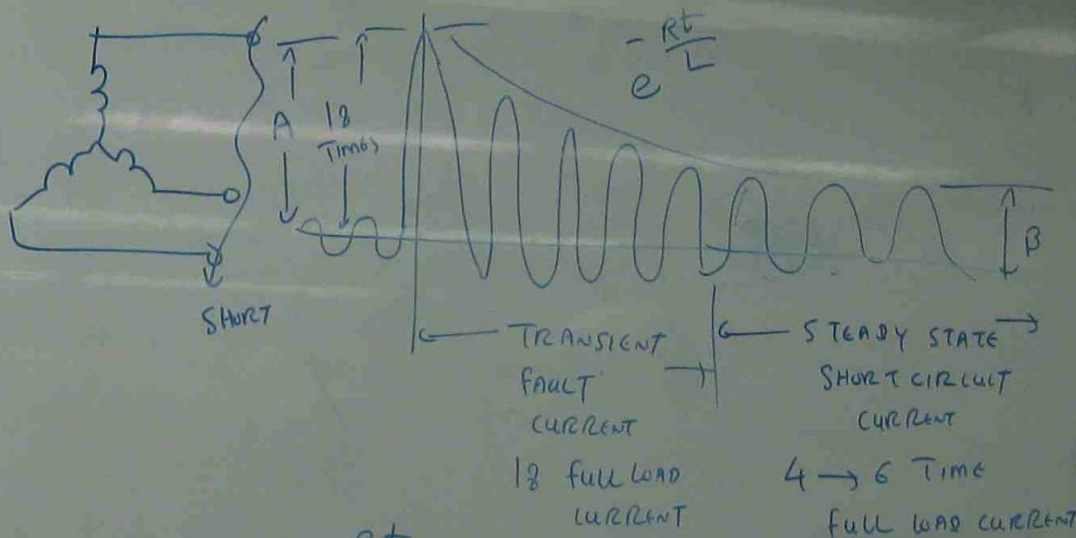 e - Rt / L
A
18
TIMES
B
SHORT
TRANSIENT
FAULT
CURRENT
18 FULL LOAD
CURRENT
STEADY STATE
SHORT CIRCUIT
CURRENT
4 → 6 TIME
FULL LOAD CURRENT